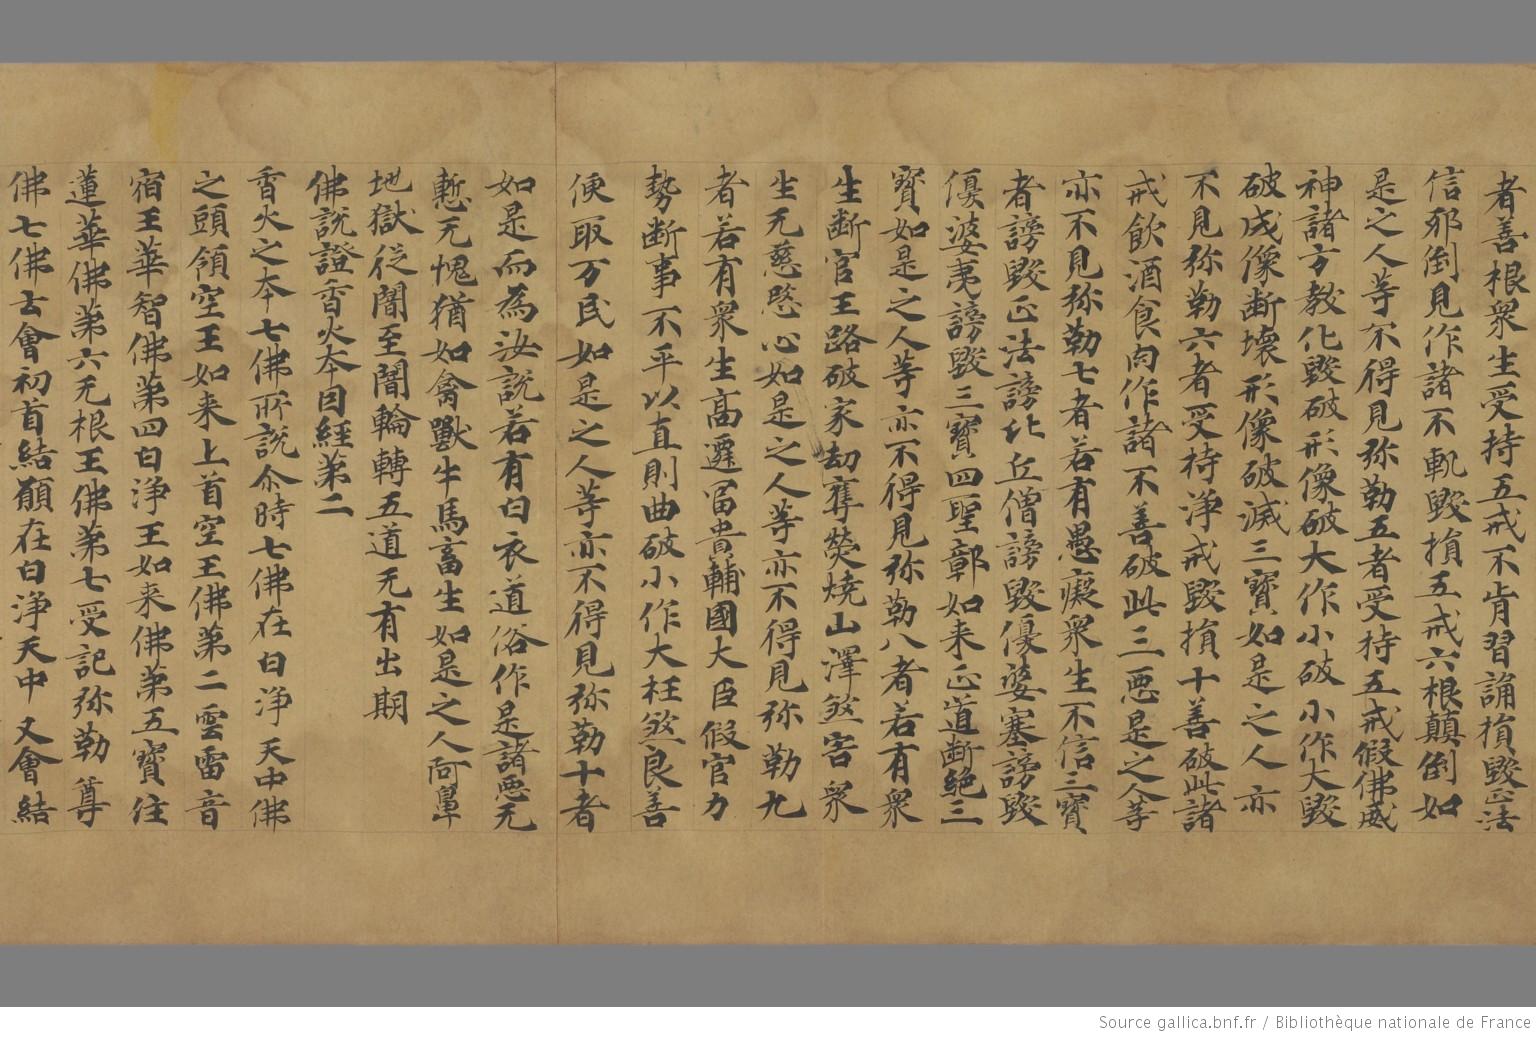 者善根衆生受持五戒不肯習誦損毀正法
信邪倒見作諸不軌毀損五戒六根顛倒如
是之人等不得見弥勒五者受持五戒假佛威
神諸方教化毀破形像破大作小破小作大毀
破成像断壞形像破滅三寶如是之人亦
不見弥勒六者受持淨戒毀損十善破此諸
戒飲酒食肉作諸不善破此三惡是之人等
亦不見弥勒七者若有愚癡衆生不信三寶
者謗毀正法謗比丘僧謗毀優婆塞謗毀
優婆夷謗毀三寶四聖鄣如来正道断絶三
寶如是之人等亦不得見弥勒八者若有衆
生断官王路破家劫奪焚燒山澤煞害衆
生无慈愍心如是之人等亦不得見弥勒九
者若有衆生高遷冨貴輔國大臣假官力
勢断事不平以直則曲破小作大枉煞良善
侵取万民如是之人等亦不得見弥勒十者
如是而為汝説若有白衣道俗作是諸惡无
慙无愧猶如禽獸牛馬畜生如是之人向鼻
地獄從闇至闇輪轉五道无有出期
佛説證香火本因經第二
香火之本七佛所説尒時七佛在白淨天中佛
之頭領空王如来上首空王佛第二雲雷音
宿王華智佛第四白淨王如来佛第五寶住
蓮華佛第六无根王佛第七受記弥勒尊
佛七佛言會初首結願在白淨天中又會結